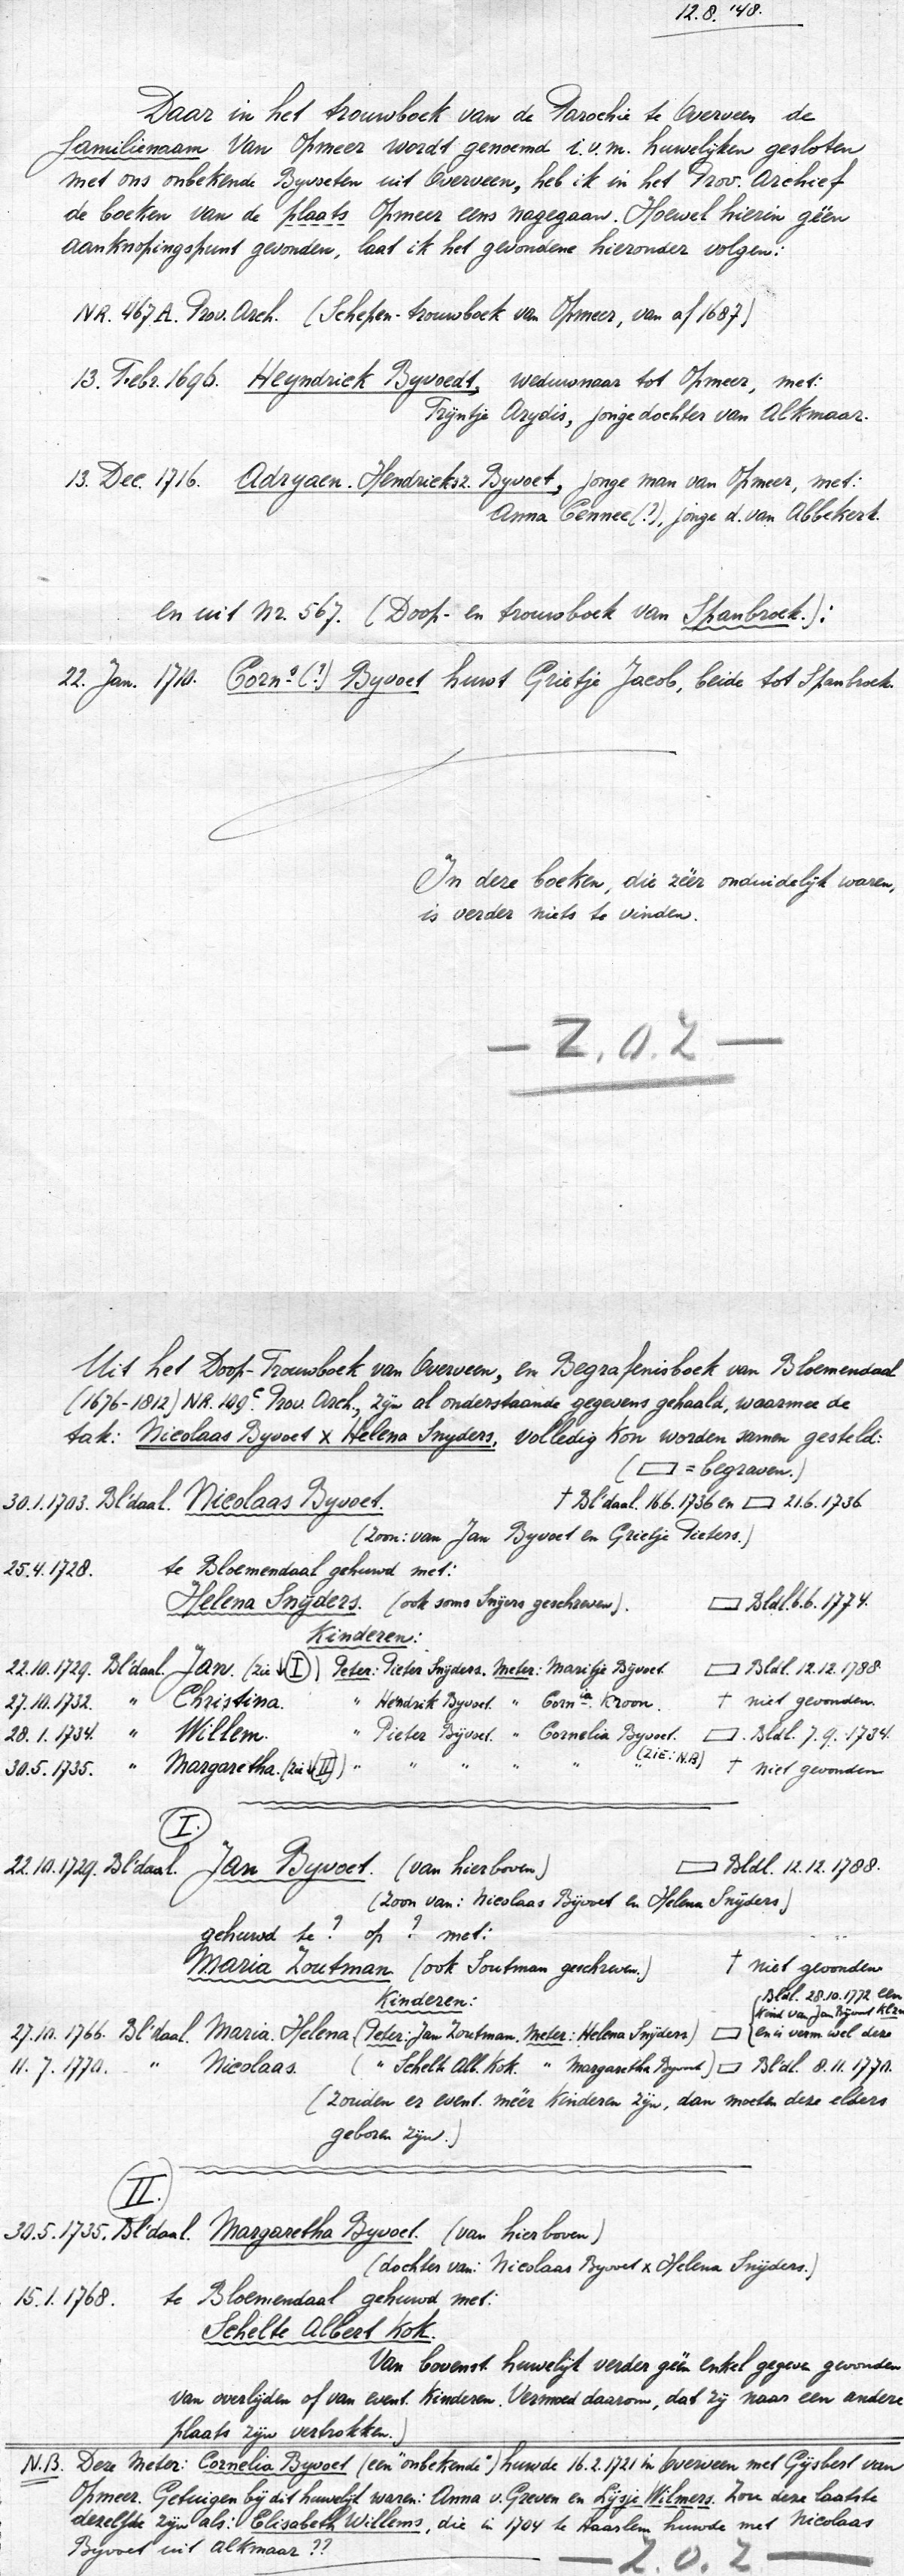 12.8.'48.
Daar in het trouwboek van de Parochie te Overveen de
familienaam Van Opmeer wordt genoemd i.v.m. huwelijken gesloten
met ons onbekende Byvoeten uit Overveen, heb ik in het Prov. Archief
de boeken van de plaats Opmeer eens nagegaan. Hoewel hierin géén
aanknopingspunt gevonden, laat ik het gevondene hieronder volgen:
NR. 467A. Prov. Arch. (Schepen-trouwboek van Opmeer, van af 1687)
13. Febr. 1696. Heyndrick Byvoedt, weduwnaar tot Opmeer, met:
Trijntje Arydis, jonge dochter van Alkmaar.
13. Dec. 1716. Adryaen. Hendricksz. Byvoet, jonge man van Opmeer, met:
Anna Cennee(?), jonge d. van Abbekerk.
en uit Nr. 567. (Doop- en trouwboek van Spanbroek.):
22. Jan. 1710. Corns (?) Byvoet huwt Grietje Jacob, beide tot Spanbroek.
In deze boeken, die zéér onduidelijk waren,
is verder niets te vinden.
— Z.O.Z —
Uit het Doop-Trouwboek van Overveen, en Begrafenisboek van Bloemendaal
(1676-1812) NR. 109c. Prov. Arch., zijn al onderstaande gegevens gehaald, waarmee de
tak: Nicolaas Byvoet x Helena Snyders, volledig kon worden samen gesteld:
(▭ = begraven.)
30.1.1703. Bl'daal. Nicolaas Byvoet. † Bl'daal. 16.6.1736 en ▭ 21.6.1736
(Zoon: van Jan Byvoet en Grietje Pieters.)
25.4.1728. te Bloemendaal gehuwd met:
Helena Snÿders. (ook soms Snÿers geschreven). ▭ Bldl. 6.6.1774.
Kinderen:
22.10.1729. Bl'daal. Jan. (zie ↓ I) Peter: Pieter Snÿders. Meter: Maritje Bÿvoet. ▭ Bldl. 12.12.1788
27.10.1732. " Christina. " Hendrik Byvoet. " Cornia. Kroon. † niet gevonden.
28.1.1734. " Willem. " Pieter Bÿvoet. " Cornelia Byvoet. ▭. Bldl. 7.9.1734.
(ZIE: N.B)
30.5.1735. " Margaretha. (zie ↓ II) " " " " " " † niet gevonden
I.
22.10.1729. Bl'daal. Jan Byvoet. (van hierboven) ▭ Bldl. 12.12.1788.
(Zoon van: Nicolaas Bÿvoet en Helena Snÿders)
gehuwd te ? op ? met:
Maria Zoutman. (ook Soutman geschreven.) † niet gevonden
Kinderen:
(Bldl. 28.10.1772 een
kind van Jan Bÿvoet
27.10.1766. Bl'daal. Maria. Helena (Peter: Jan Zoutman. Meter: Helena Snÿders) ▭ en is verm. wel deze
11.7.1770. " Nicolaas. ( " Schelt. Alb. Kok. " Margaretha Byvoet) ▭ Bl'dl. 8.11.1770.
(Zouden er event. méér kinderen zijn, dan moeten deze elders
geboren zijn.)
II.
30.5.1735. Bl'daal. Margaretha Byvoet. (van hierboven)
(dochter van: Nicolaas Byvoet x Helena Snÿders.)
15.1.1768. te Bloemendaal gehuwd met:
Schelte Albert Kok.
Van bovenst. huwelijk verder géén enkel gegeven gevonden
van overlijden of van event. kinderen. Vermoed daarom, dat zij naar een andere
plaats zijn vertrokken.)
N.B. Deze meter: Cornelia Byvoet (een "onbekende") huwde 16.2.1721 in Overveen met Gijsbert van
Opmeer. Getuigen bij dit huwelijk waren: Anna v. Greven en Lijsje Wilmers. Zou deze laatste
dezelfde zijn als: Elisabeth Willems, die in 1704 te Haarlem huwde met Nicolaas
Byvoet uit Alkmaar ??
— Z.O.Z —